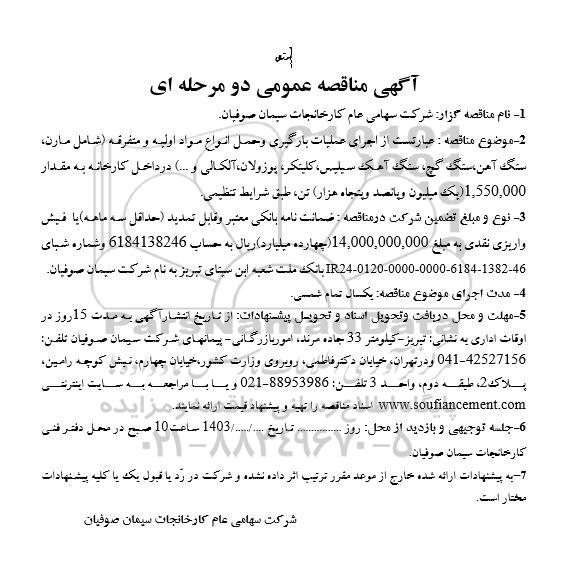 متن
آگهی مناقصه عمومی دو مرحله ای
1- نام مناقصه گزار: شرکت سهامی عام کارخانجات سیمان صوفیان.
2-موضوع مناقصه : عبارتست از اجرای عملیات بارگیری وحمل انواع مواد اولیه و متفرقه (شامل مارن،
سنگ آهن،سنگ گچ، سنگ آهک سیلیس،کلینکر، پوزولان،آلکالی و ...) درداخل کارخانه به مقدار
1,550,000(یک میلیون وپانصد وپنجاه هزار) تن، طبق شرایط تنظیمی.
3- نوع و مبلغ تضمین شرکت درمناقصه : ضمانت نامه بانکی معتبر وقابل تمدید (حداقل سه ماهه)یا فیش
واریزی نقدی به مبلغ 14,000,000,000(چهارده میلیارد)ریال به حساب 6184138246 وشماره شبای
IR24-0120-0000-0000-6184-1382-46 بانک ملت شعبه ابن سینای تبریز به نام شرکت سیمان صوفیان.
4- مدت اجرای موضوع مناقصه: یکسال تمام شمسی.
5-مهلت و محل دریافت وتحویل اسناد و تحویل پیشنهادات: از تاریخ انتشارآگهی به مدت 15روز در
اوقات اداری به نشانی: تبریز-کیلومتر 33 جاده مرند، اموربازرگانی- پیمانهای شرکت سیمان صوفیان تلفن:
041-42527156 ودرتهران، خیابان دکترفاطمی، روبروی وزارت کشور،خیابان چهارم، نبش کوچه رامین،
پلاک2، طبقه دوم، واحد 3 تلفن: 88953986-021 و یا با مراجعه به سایت اینترنتی
www.soufiancement.com اسناد مناقصه را تهیه و پیشنهاد قیمت ارائه نمایند.
6-جلسه توجیهی و بازدید از محل: روز ................ تاریخ ..../...../1403 ساعت10 صبح در محل دفتر فنی
کارخانجات سیمان صوفیان.
7-به پیشنهادات ارائه شده خارج از موعد مقرر ترتیب اثر داده نشده و شرکت در رّد یا قبول یک یا کلیه پیشنهادات
مختار است.
شرکت سهامی عام کارخانجات سیمان صوفیان
۰۲۱-۸۸۳۴۹۶۷۰-۵